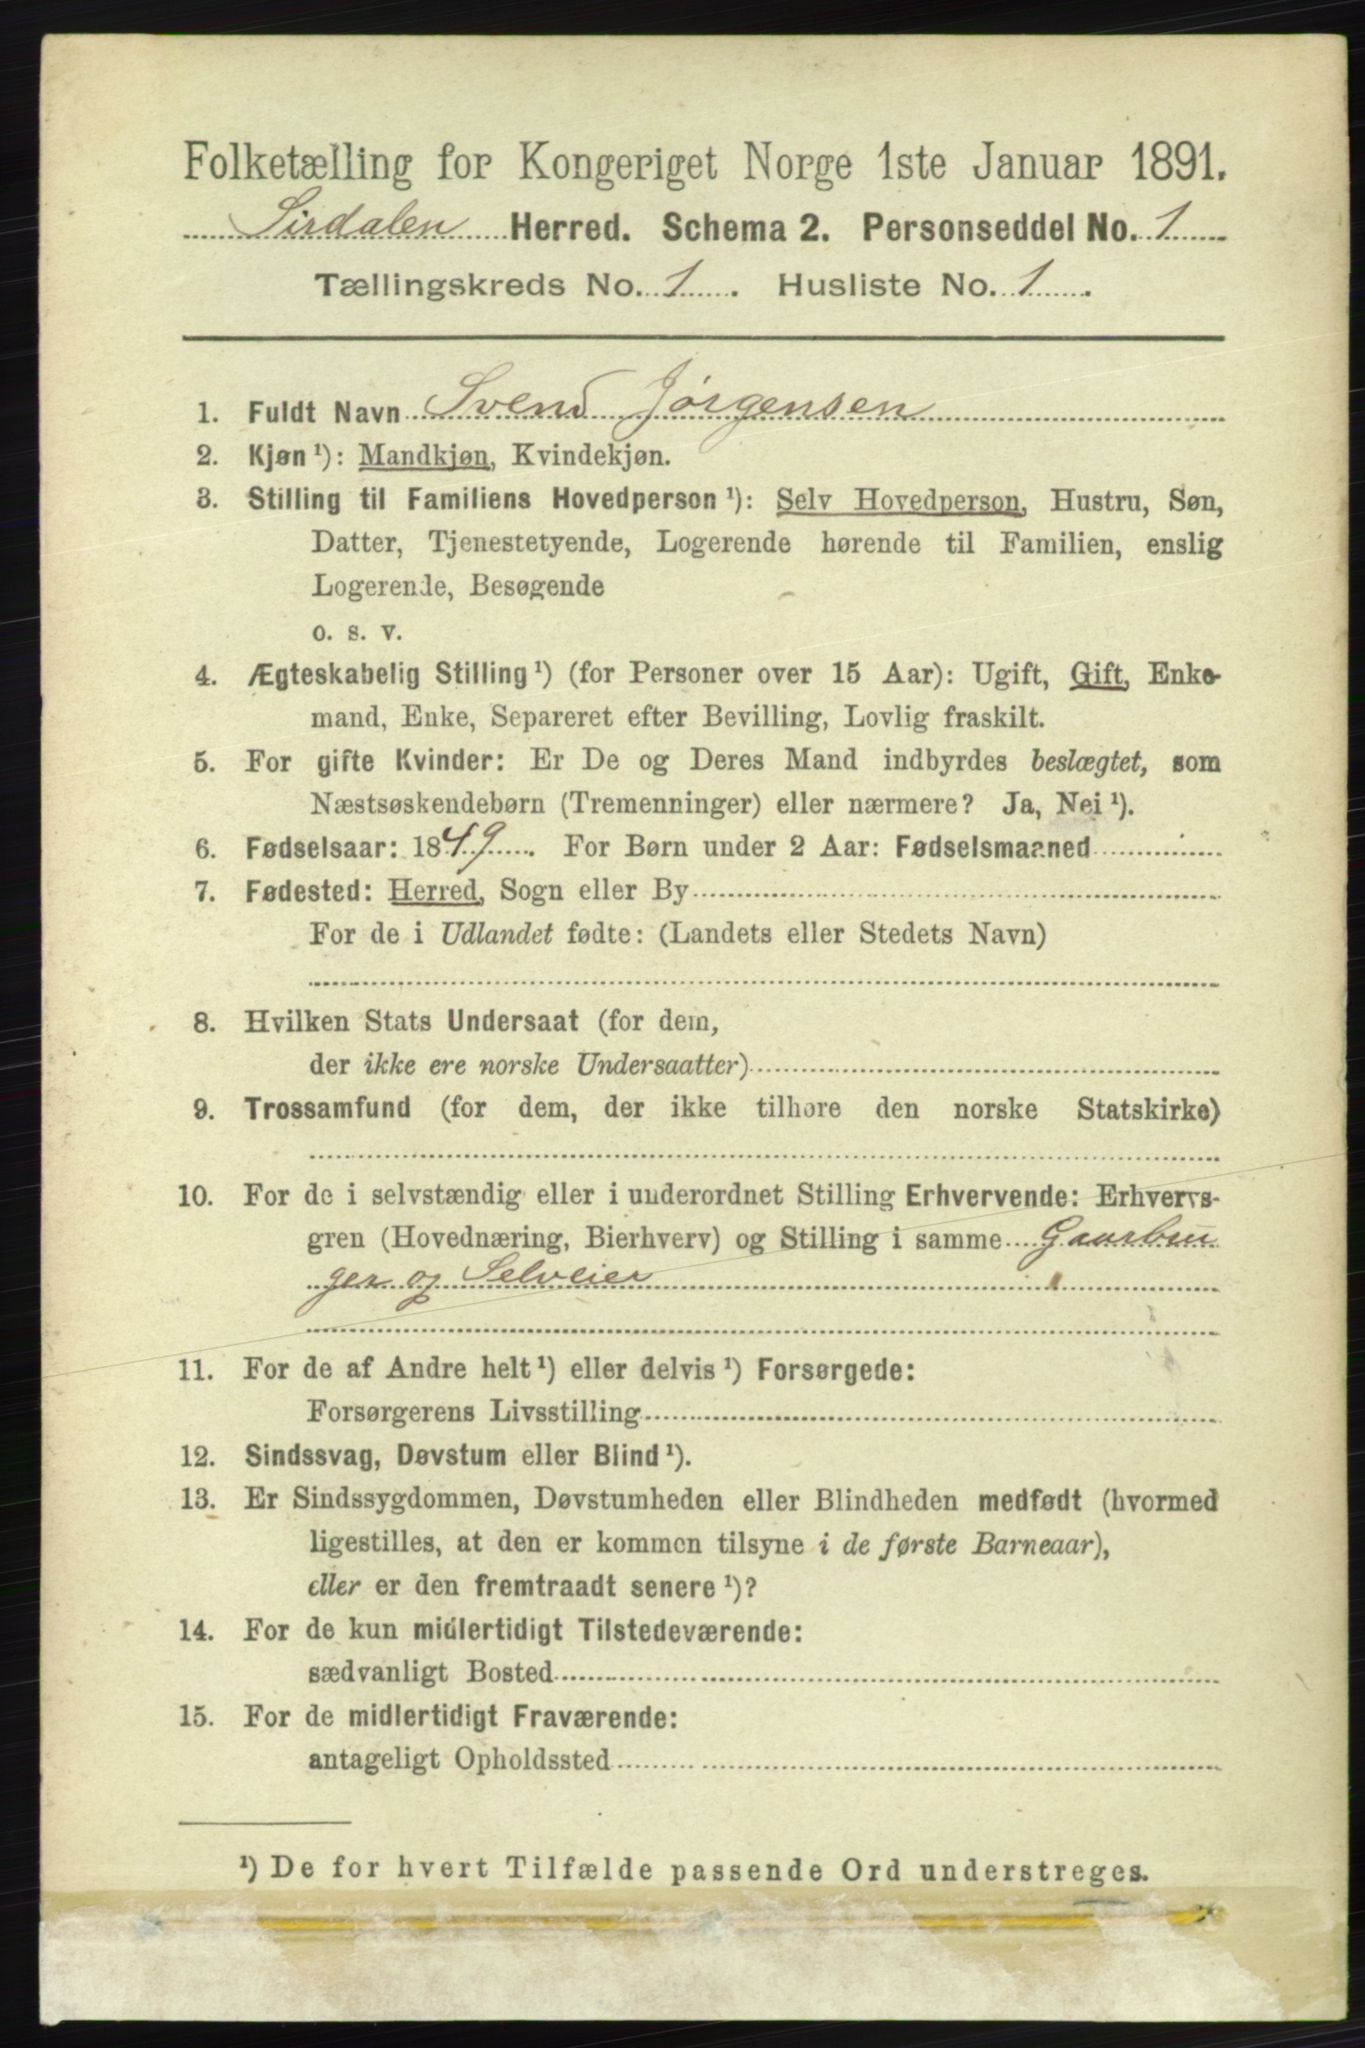 Folketælling for Kongeriget Norge 1ste Januar 1891.
Sirdalen Herred. Schema 2. Personseddel No. 1
Tællingskreds No. 1. Husliste No. 1.
1. Fuldt Navn Svend Jørgensen
2. Kjøn ¹): Mandkjøn, Kvindekjøn.
3. Stilling til Familiens Hovedperson ¹): Selv Hovedperson, Hustru, Søn,
Datter, Tjenestetyende, Logerende hørende til Familien, enslig
Logerende, Besøgende
o. s. v.
4. Ægteskabelig Stilling ¹) (for Personer over 15 Aar): Ugift, Gift, Enke-
mand, Enke, Separeret efter Bevilling, Lovlig fraskilt.
5. For gifte Kvinder: Er De og Deres Mand indbyrdes beslægtet, som
Næstsøskendebørn (Tremenninger) eller nærmere? Ja, Nei ¹).
6. Fødselsaar: 1849. For Børn under 2 Aar: Fødselsmaaned
7. Fødested: Herred, Sogn eller By
For de i Udlandet fødte: (Landets eller Stedets Navn)
8. Hvilken Stats Undersaat (for dem,
der ikke ere norske Undersaatter)
9. Trossamfund (for dem, der ikke tilhøre den norske Statskirke)
10. For de i selvstændig eller i underordnet Stilling Erhvervende: Erhvervs-
gren (Hovednæring, Bierhverv) og Stilling i samme Gaarbru
ger og Selveier
11. For de af Andre helt ¹) eller delvis ¹) Forsørgede:
Forsørgerens Livsstilling
12. Sindssvag, Døvstum eller Blind ¹).
13. Er Sindssygdommen, Døvstumheden eller Blindheden medfødt (hvormed
ligestilles, at den er kommen tilsyne i de første Barneaar),
eller er den fremtraadt senere ¹)?
14. For de kun midlertidigt Tilstedeværende:
sædvanligt Bosted
15. For de midlertidigt Fraværende:
antageligt Opholdssted
¹) De for hvert Tilfælde passende Ord understreges.